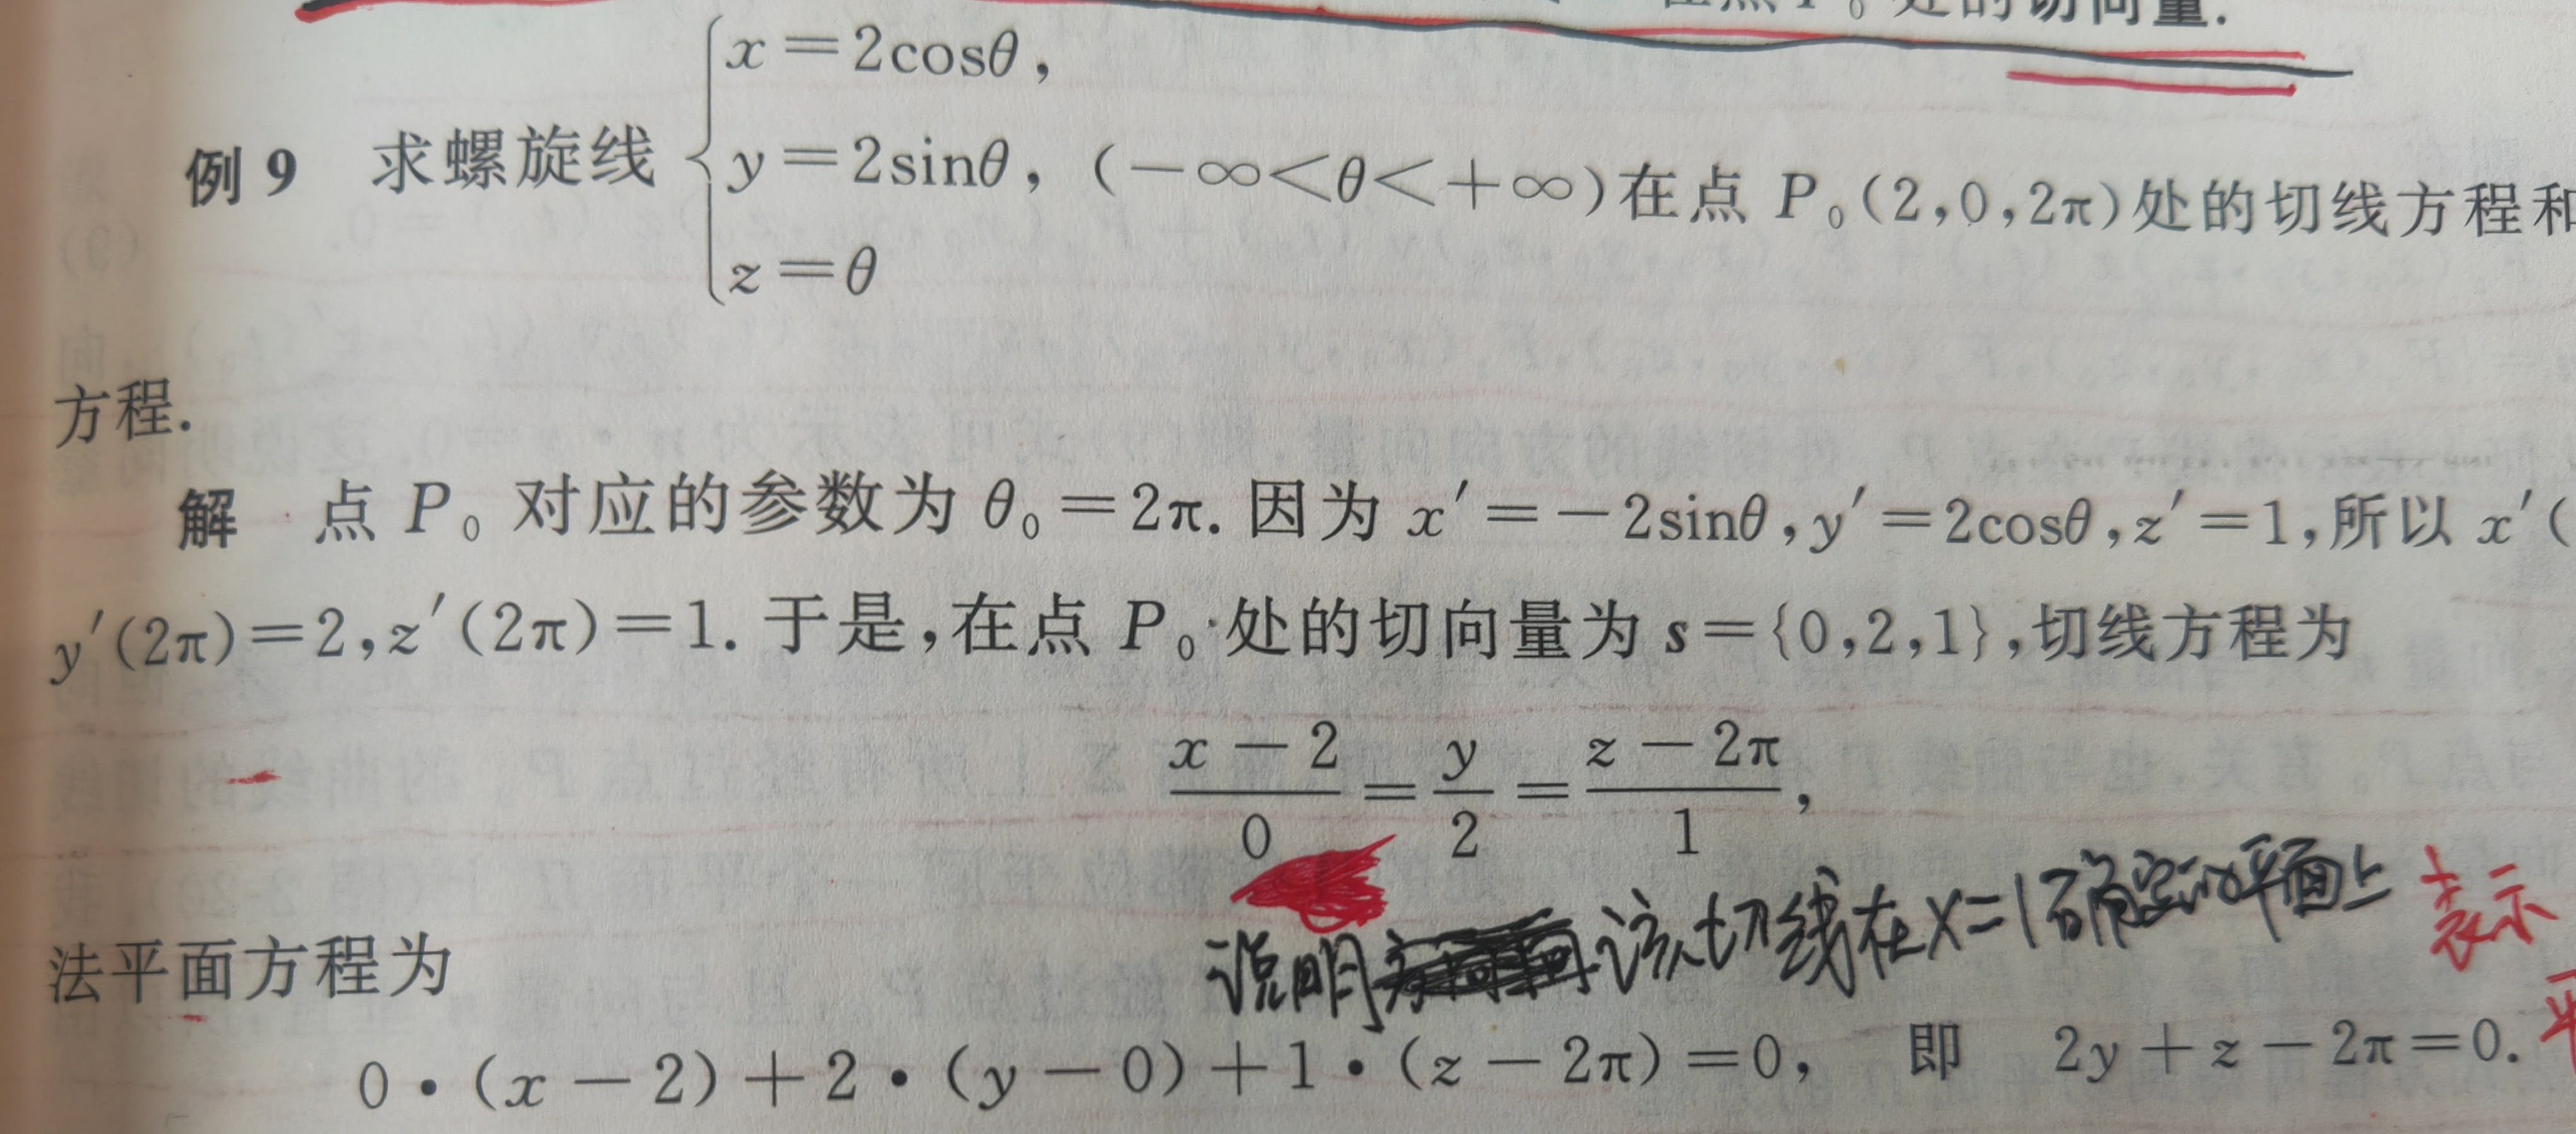 处的切向量.
x=2cosθ,
例9 求螺旋线 y=2sinθ, (-∞<θ<+∞)在点 P₀(2,0,2π)处的切线方程和
z=θ
方程.
解 点 P₀ 对应的参数为 θ₀=2π. 因为 x′=-2sinθ,y′=2cosθ,z′=1,所以 x′(
y′(2π)=2,z′(2π)=1. 于是,在点 P₀ 处的切向量为 s={0,2,1},切线方程为
(x-2)/0=y/2=(z-2π)/1,
说明 该切线在x=1确定的平面上 表示
法平面方程为
0·(x-2)+2·(y-0)+1·(z-2π)=0, 即 2y+z-2π=0.